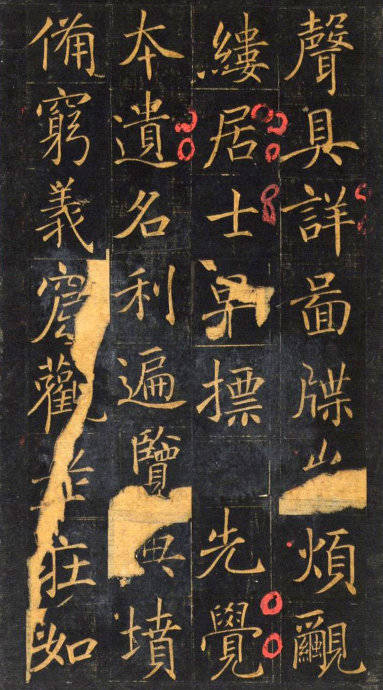 聲具詳啚牒煩覼
縷居士早標先覺
夲遺名利遍覽典墳
備窮義觀如